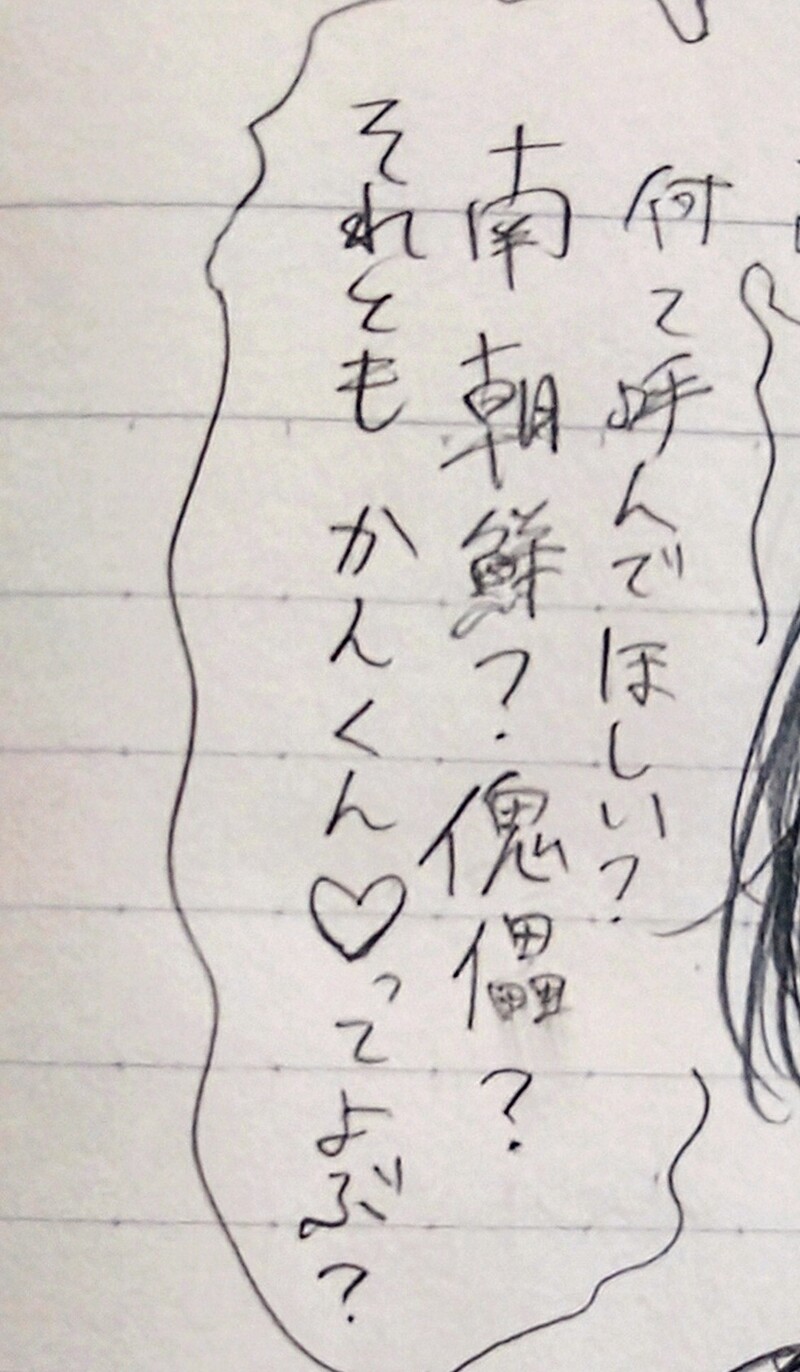 何て呼んでほしい?
南朝鮮?傀儡?
それとも かんくん♡ってよぶ?